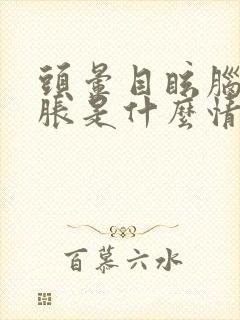 頭暈目眩腦
脹是什麼情
百慕六水